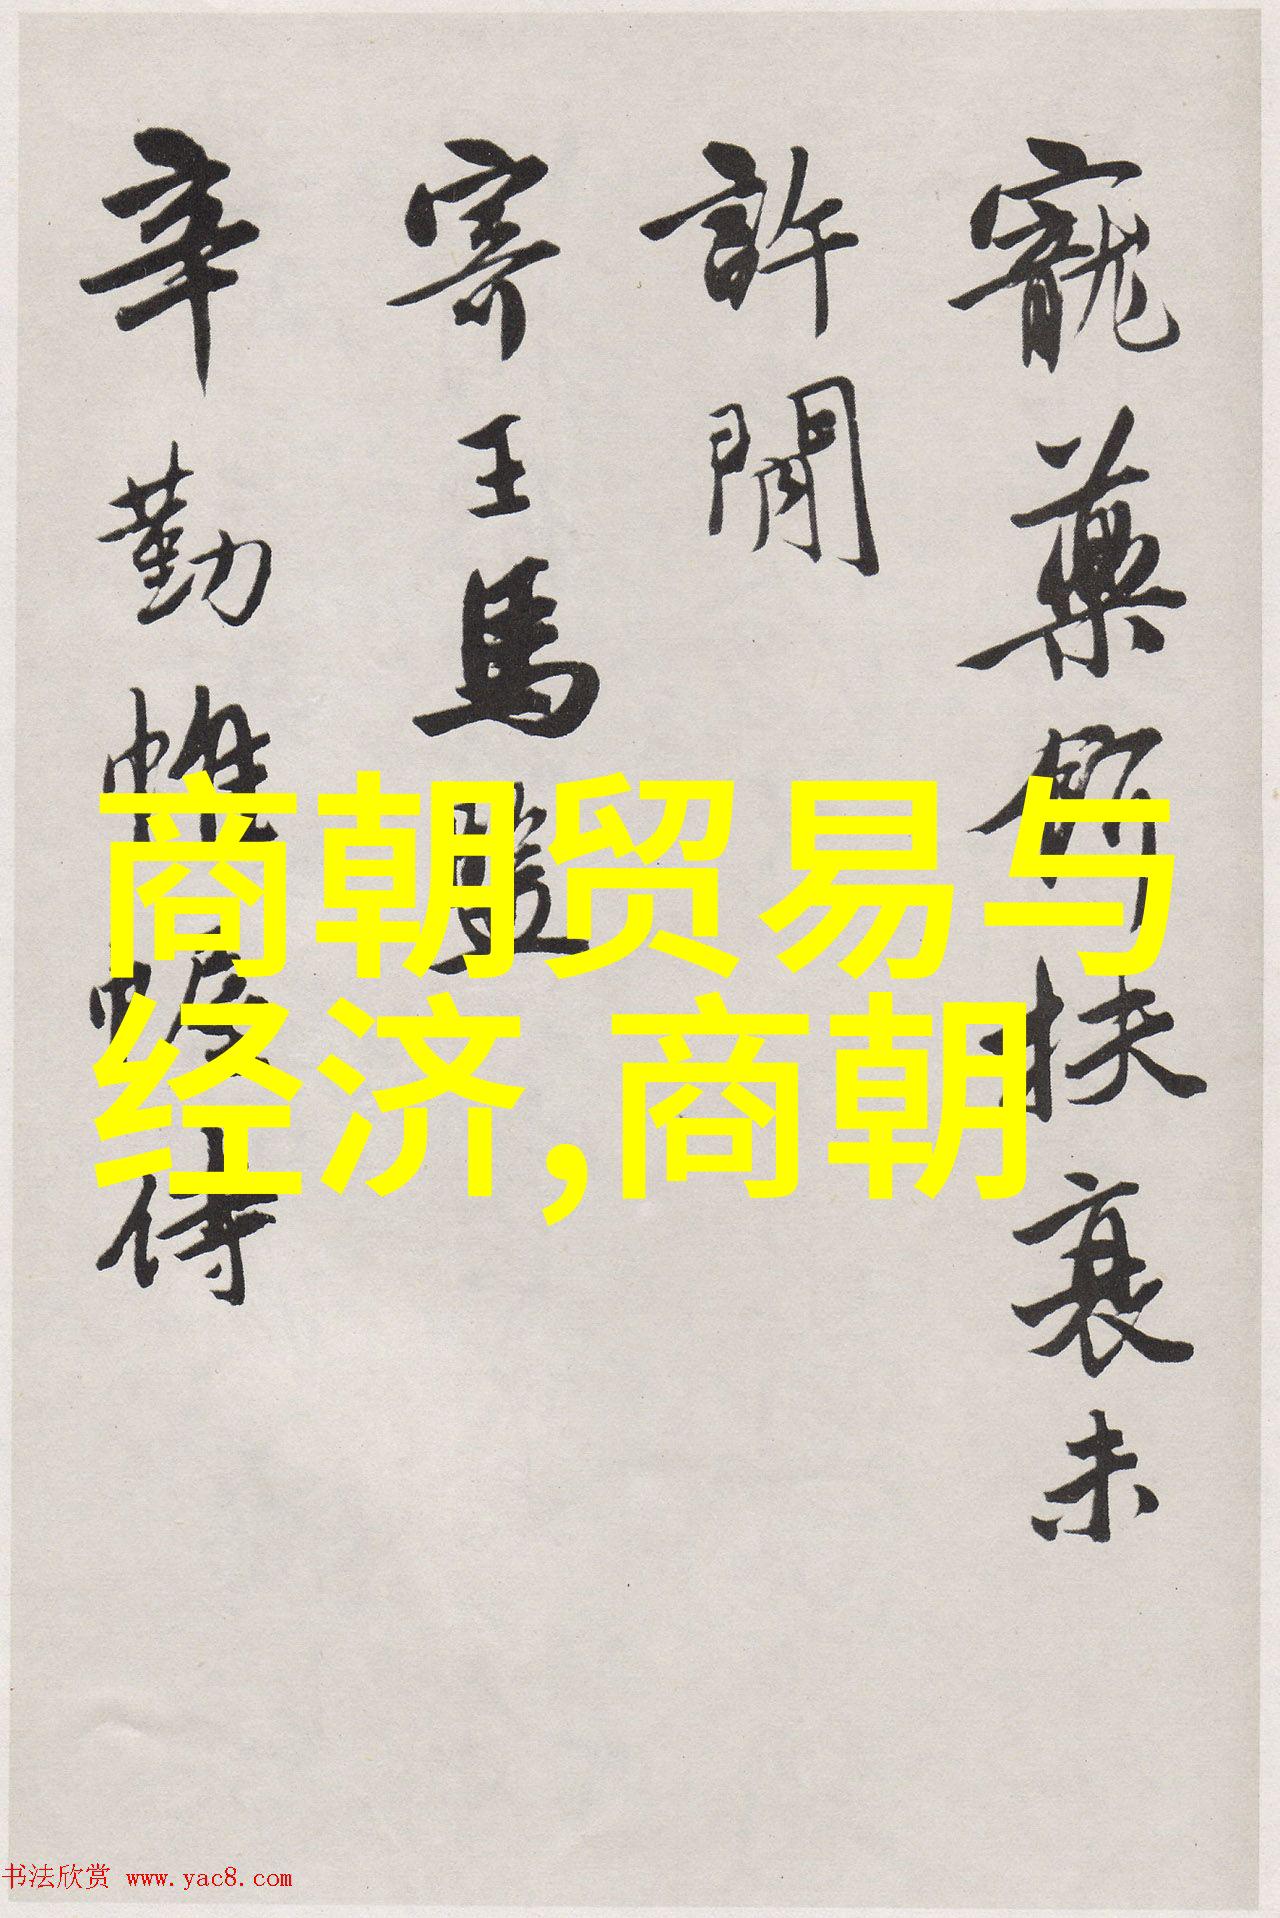 寵藥餌扶衰未
許閒
寄王馬監
辛勤帷幄侍
商朝贸易与
经济,商朝
书法欣赏 www.yac8.com